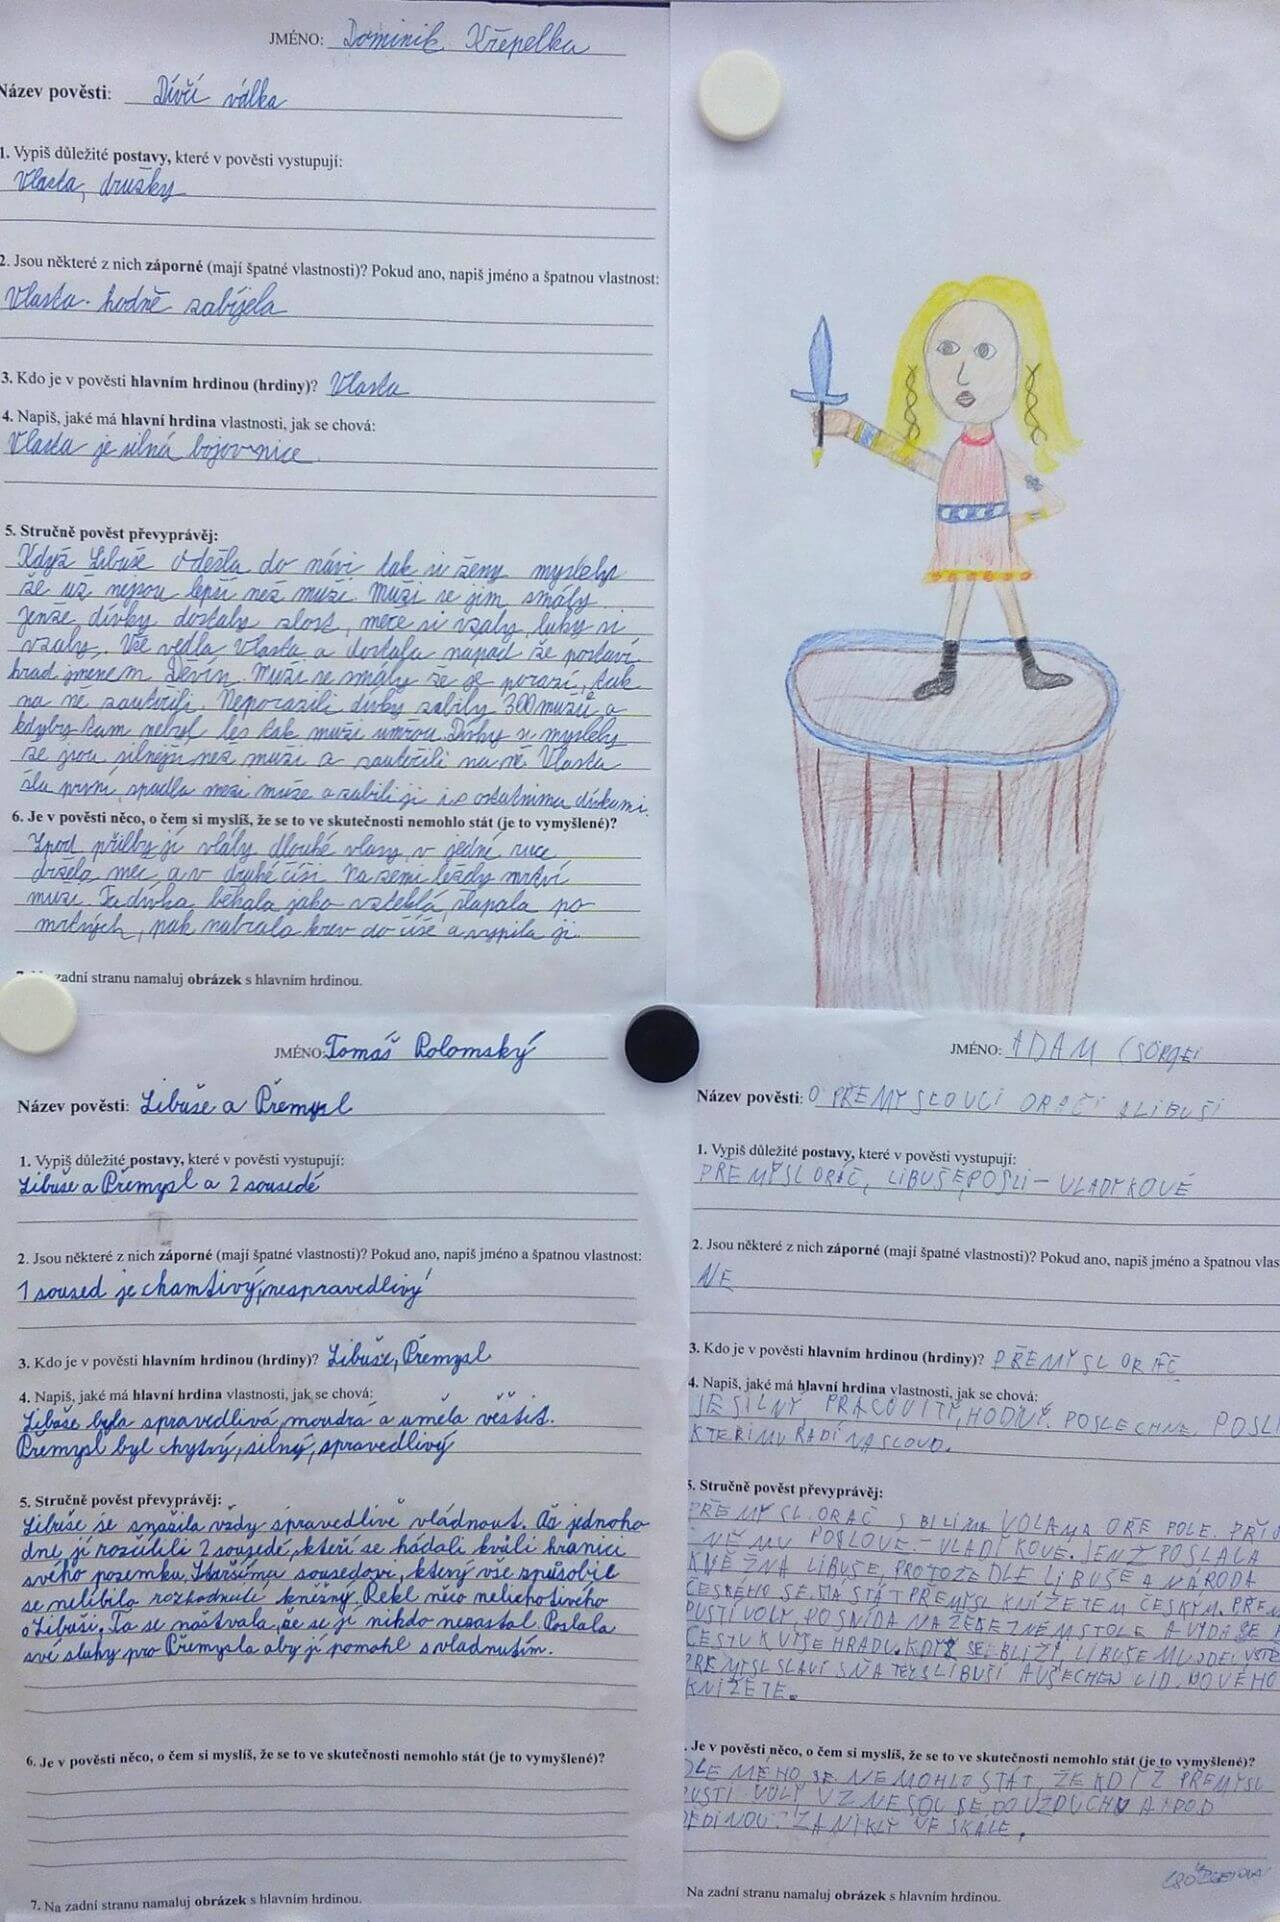 JMÉNO: Dominik Křepelka
Název pověsti: Dívčí válka
1. Vypiš důležité postavy, které v pověsti vystupují:
Vlasta, družky
2. Jsou některé z nich záporné (mají špatné vlastnosti)? Pokud ano, napiš jméno a špatnou vlastnost:
Vlasta - hodně zabíjela
3. Kdo je v pověsti hlavním hrdinou (hrdiny)? Vlasta
4. Napiš, jaké má hlavní hrdina vlastnosti, jak se chová:
Vlasta je silná bojovnice.
5. Stručně pověst převyprávěj:
Když Libuše odešla do návi tak si ženy myslely
že už nejsou lepší než muži. Muži se jim smály.
Jenže dívky dostaly zlost, meče si vzaly, luky si
vzaly. Vše vedla Vlasta a dostala nápad že postaví
hrad jménem Děvín. Muži se smály že je porazí, tak
na ně zaútočili. Neporazili dívky zabily 300 mužů a
kdyby tam nebyl les tak muži umřou. Dívky si myslely
že jsou silnější než muži a zaútočili na ně. Vlasta
šla první, spadla mezi muže a zabili ji i s ostatníma dívkami.
6. Je v pověsti něco, o čem si myslíš, že se to ve skutečnosti nemohlo stát (je to vymyšlené)?
Zpod přilby jí vlály dlouhé vlasy, v jedné ruce
držela meč a v druhé číši. Na zemi leždy mrtví
muži. Ta dívka běhala jako vzteklá, šlapala po
mrtvých, pak nabrala krev do číše a vypila ji.
zadní stranu namaluj obrázek s hlavním hrdinou.
JMÉNO: Tomáš Polomský
Název pověsti: Libuše a Přemysl
1. Vypiš důležité postavy, které v pověsti vystupují:
Libuše a Přemysl a 2 sousedé
2. Jsou některé z nich záporné (mají špatné vlastnosti)? Pokud ano, napiš jméno a špatnou vlastnost:
1 soused je chamtivý, nespravedlivý
3. Kdo je v pověsti hlavním hrdinou (hrdiny)? Libuše, Přemysl
4. Napiš, jaké má hlavní hrdina vlastnosti, jak se chová:
Libuše byla spravedlivá, moudrá a uměla věštit.
Přemysl byl chytrý, silný, spravedlivý
5. Stručně pověst převyprávěj:
Libuše se snažila vždy spravedlivě vládnout. Až jednoho
dne jí rozčílili 2 sousedé, kteří se hádali kvůli hranici
svého pozemku. Staršímu sousedovi, který vše způsobil
se nelíbilo rozhodnutí kněžny. Řekl něco nelichotivého
o Libuši. Ta se naštvala, že se jí nikdo nezastal. Poslala
své sluhy pro Přemysla aby jí pomohl s vládnutím.
6. Je v pověsti něco, o čem si myslíš, že se to ve skutečnosti nemohlo stát (je to vymyšlené)?
7. Na zadní stranu namaluj obrázek s hlavním hrdinou.
JMÉNO: ADAM CSÖRGEI
Název pověsti: O PŘEMYSLOVCI ORAČI A LIBUŠI
1. Vypiš důležité postavy, které v pověsti vystupují:
PŘEMYSL ORÁČ, LIBUŠE, POSLI - VLADYKOVÉ
2. Jsou některé z nich záporné (mají špatné vlastnosti)? Pokud ano, napiš jméno a špatnou vlas
NE
3. Kdo je v pověsti hlavním hrdinou (hrdiny)? PŘEMYSL ORÁČ
4. Napiš, jaké má hlavní hrdina vlastnosti, jak se chová:
JE SILNÝ, PRACOVITÝ, HODNÝ. POSLECHNE POSLI
KTEŘÍ MU RADÍ
5. Stručně pověst převyprávěj:
PŘEMYSL ORÁČ S BÍLÝMA VOLAMA OŘE POLE.
NĚMU POSLOVÉ - VLADÍKOVÉ. JENŽ POSLALA
KNĚŽNA LIBUŠE, PROTOŽE DLE LIBUŠE A NÁRODA
ČESKÉHO SE MÁ STÁT PŘEMYSL KNÍŽETEM ČESKÝM. PŘEM
PUSTÍ VOLY, POSNÍDÁ NA ŽELEZNÉM STOLE A VYDÁ SE
CESTU K VYŠEHRADU. KDYŽ SE BLÍŽÍ, LIBUŠE MU JDE
PŘEMYSL SLAVÍ SŇATEK S LIBUŠÍ A VŠECHEN LID NOVÉHO
KNÍŽETE.
. Je v pověsti něco, o čem si myslíš, že se to ve skutečnosti nemohlo stát (je to vymyšlené)?
DLE MÉHO SE NEMOHLO STÁT, ŽE KDYŽ PŘEMYSL
PUSTÍ VOLY, VZNESOU SE DO VZDUCHU A POD
DĚDINOU ZANIKLY VE SKÁLE.
Na zadní stranu namaluj obrázek s hlavním hrdinou.